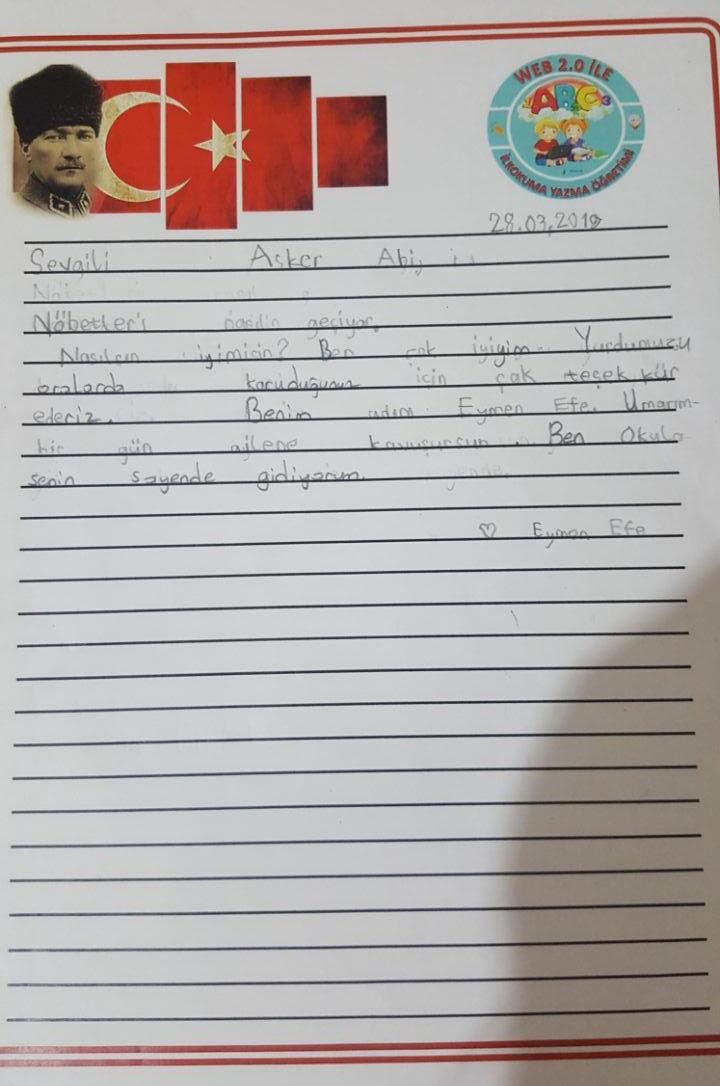 WEB 2.0 İLE
ABC
İLKOKUMA YAZMA ÖĞRETİMİ
28.03.2019
Sevgili Asker Abi,
Nöbetler'i nasılın geçiyor.
Nasılsın iyimisin? Ben çok iyiyim Yurdumuzu
oralarda koruduğunuz için çok teşekkür
ederiz. Benim adım Eymen Efe. Umarım-
bir gün ailene kavuşursun. Ben Okula
senin sayende gidiyorum.
♡ Eymen Efe